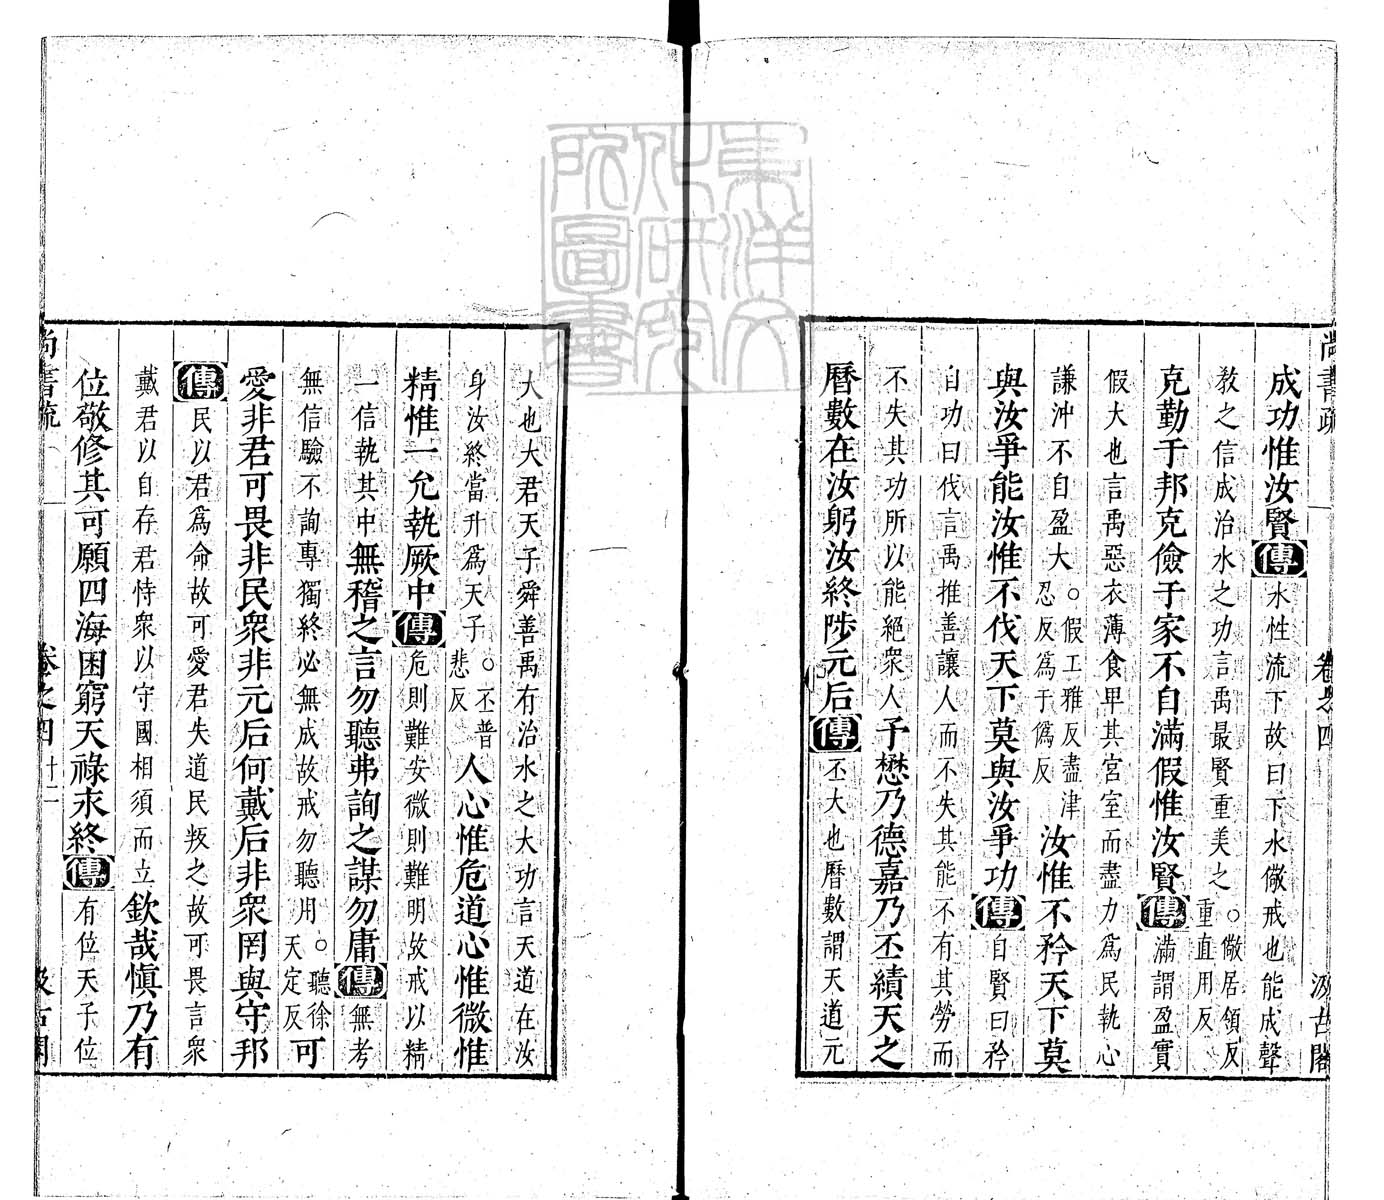 尚書疏 卷之四 汲古閣
成功惟汝賢傳水性流下故曰下水儆戒也能成聲
教之信成治水之功言禹最賢重美之○儆居領反重直用反
克勤于邦克儉于家不自滿假惟汝賢傳滿謂盈實
假大也言禹惡衣薄食卑其宮室而盡力為民執心
謙沖不自盈大○假工雅反盡津忍反爲于僞反汝惟不矜天下莫
與汝爭能汝惟不伐天下莫與汝爭功傳自賢曰矜
自功曰伐言禹推善讓人而不失其能不有其勞而
不失其功所以能絕衆人予懋乃德嘉乃丕績天之
曆數在汝躬汝終陟元后傳丕大也曆數謂天道元
大也大君天子舜善禹有治水之大功言天道在汝
身汝終當升爲天子○丕普悲反人心惟危道心惟微惟
精惟一允執厥中傳危則難安微則難明故戒以精
一信執其中無稽之言勿聽弗詢之謀勿庸傳無考
無信驗不詢專獨終必無成故戒勿聽用○聽徐天定反可
愛非君可畏非民衆非元后何戴后非衆罔與守邦
傳民以君爲命故可愛君失道民叛之故可畏言衆
戴君以自存君恃衆以守國相須而立欽哉慎乃有
位敬修其可願四海困窮天祿永終傳有位天子位
尚書疏 卷之四 十二 汲古閣
東洋文化研究院圖書